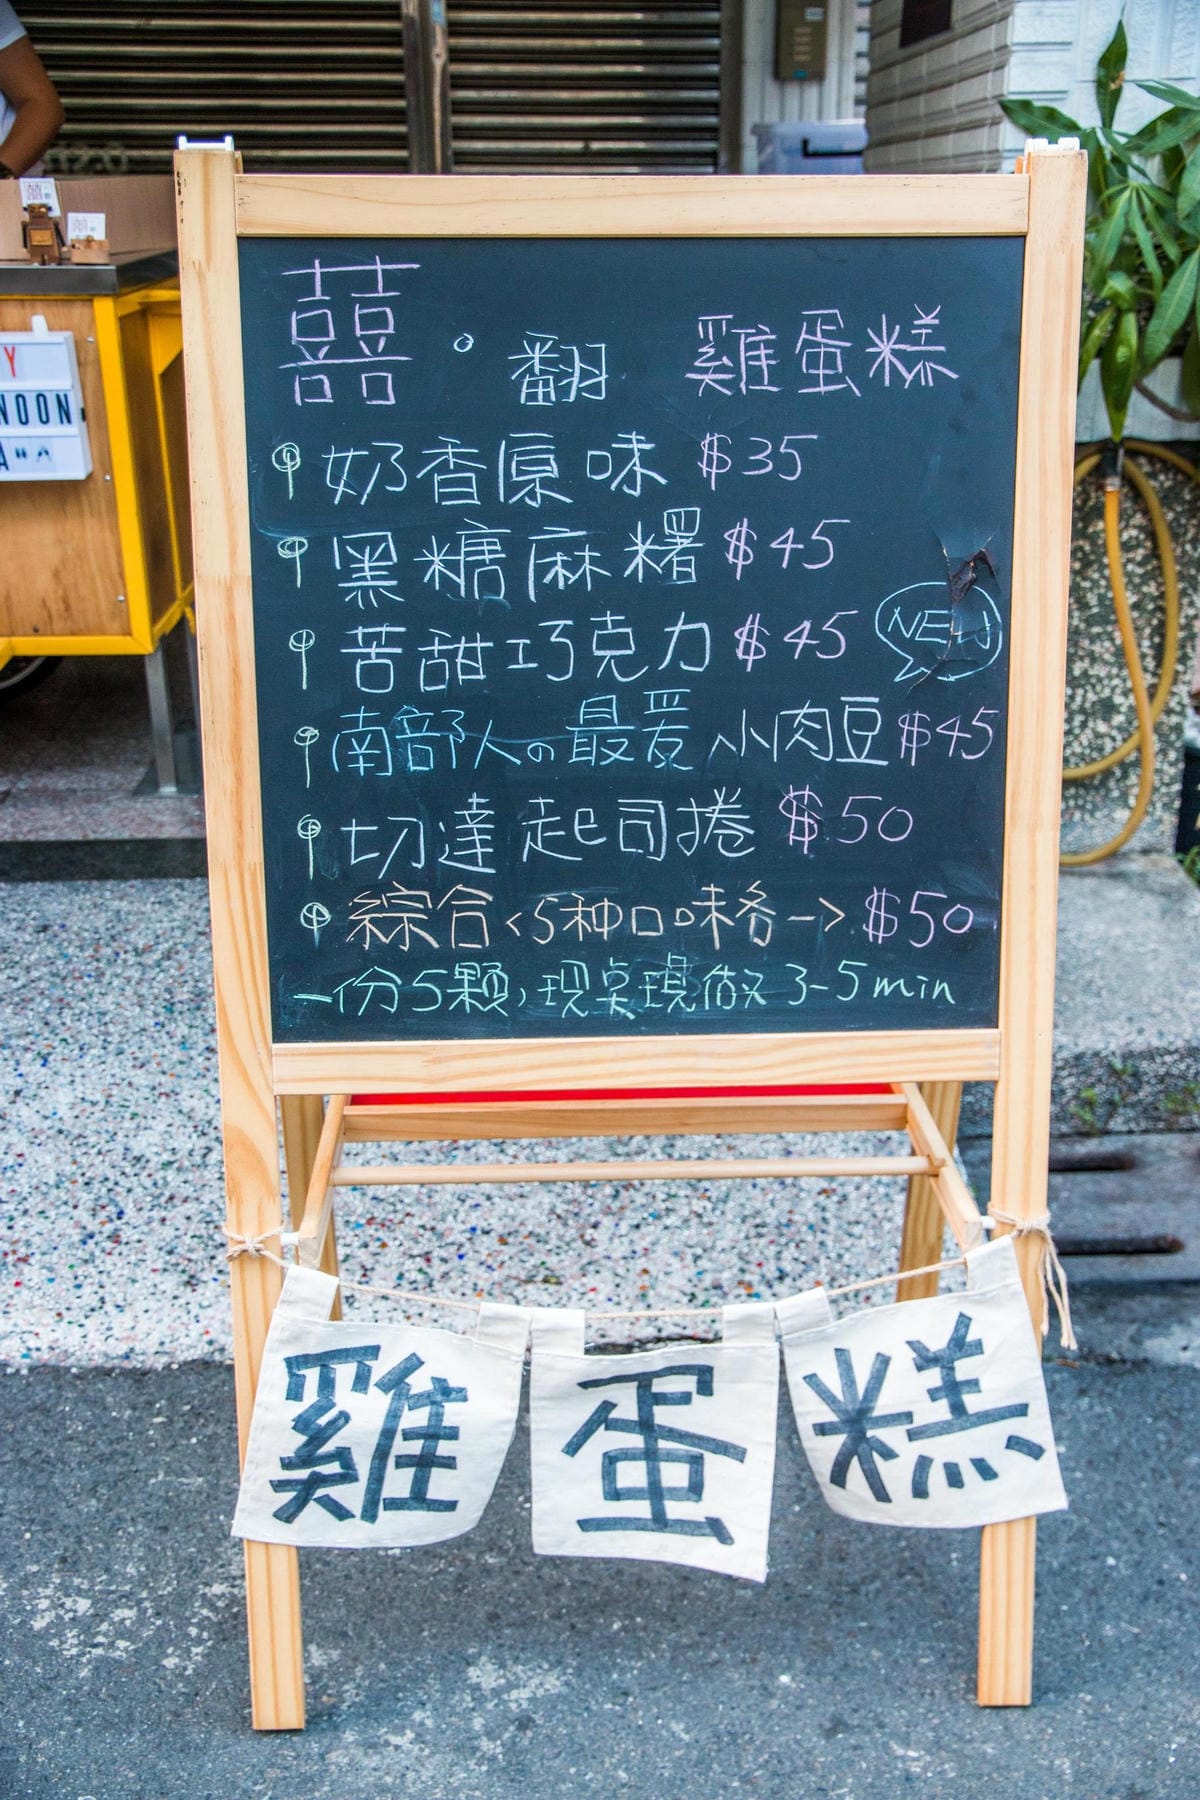 囍。翻 雞蛋糕
奶香原味 $35
黑糖麻糬 $45
苦甜巧克力 $45 NEW
南部人の最爱 小肉豆 $45
切達起司捲 $50
綜合<5种口味各一> $50
一份5顆,現桌現做 3-5min
雞 蛋 糕
Y
NOON
A